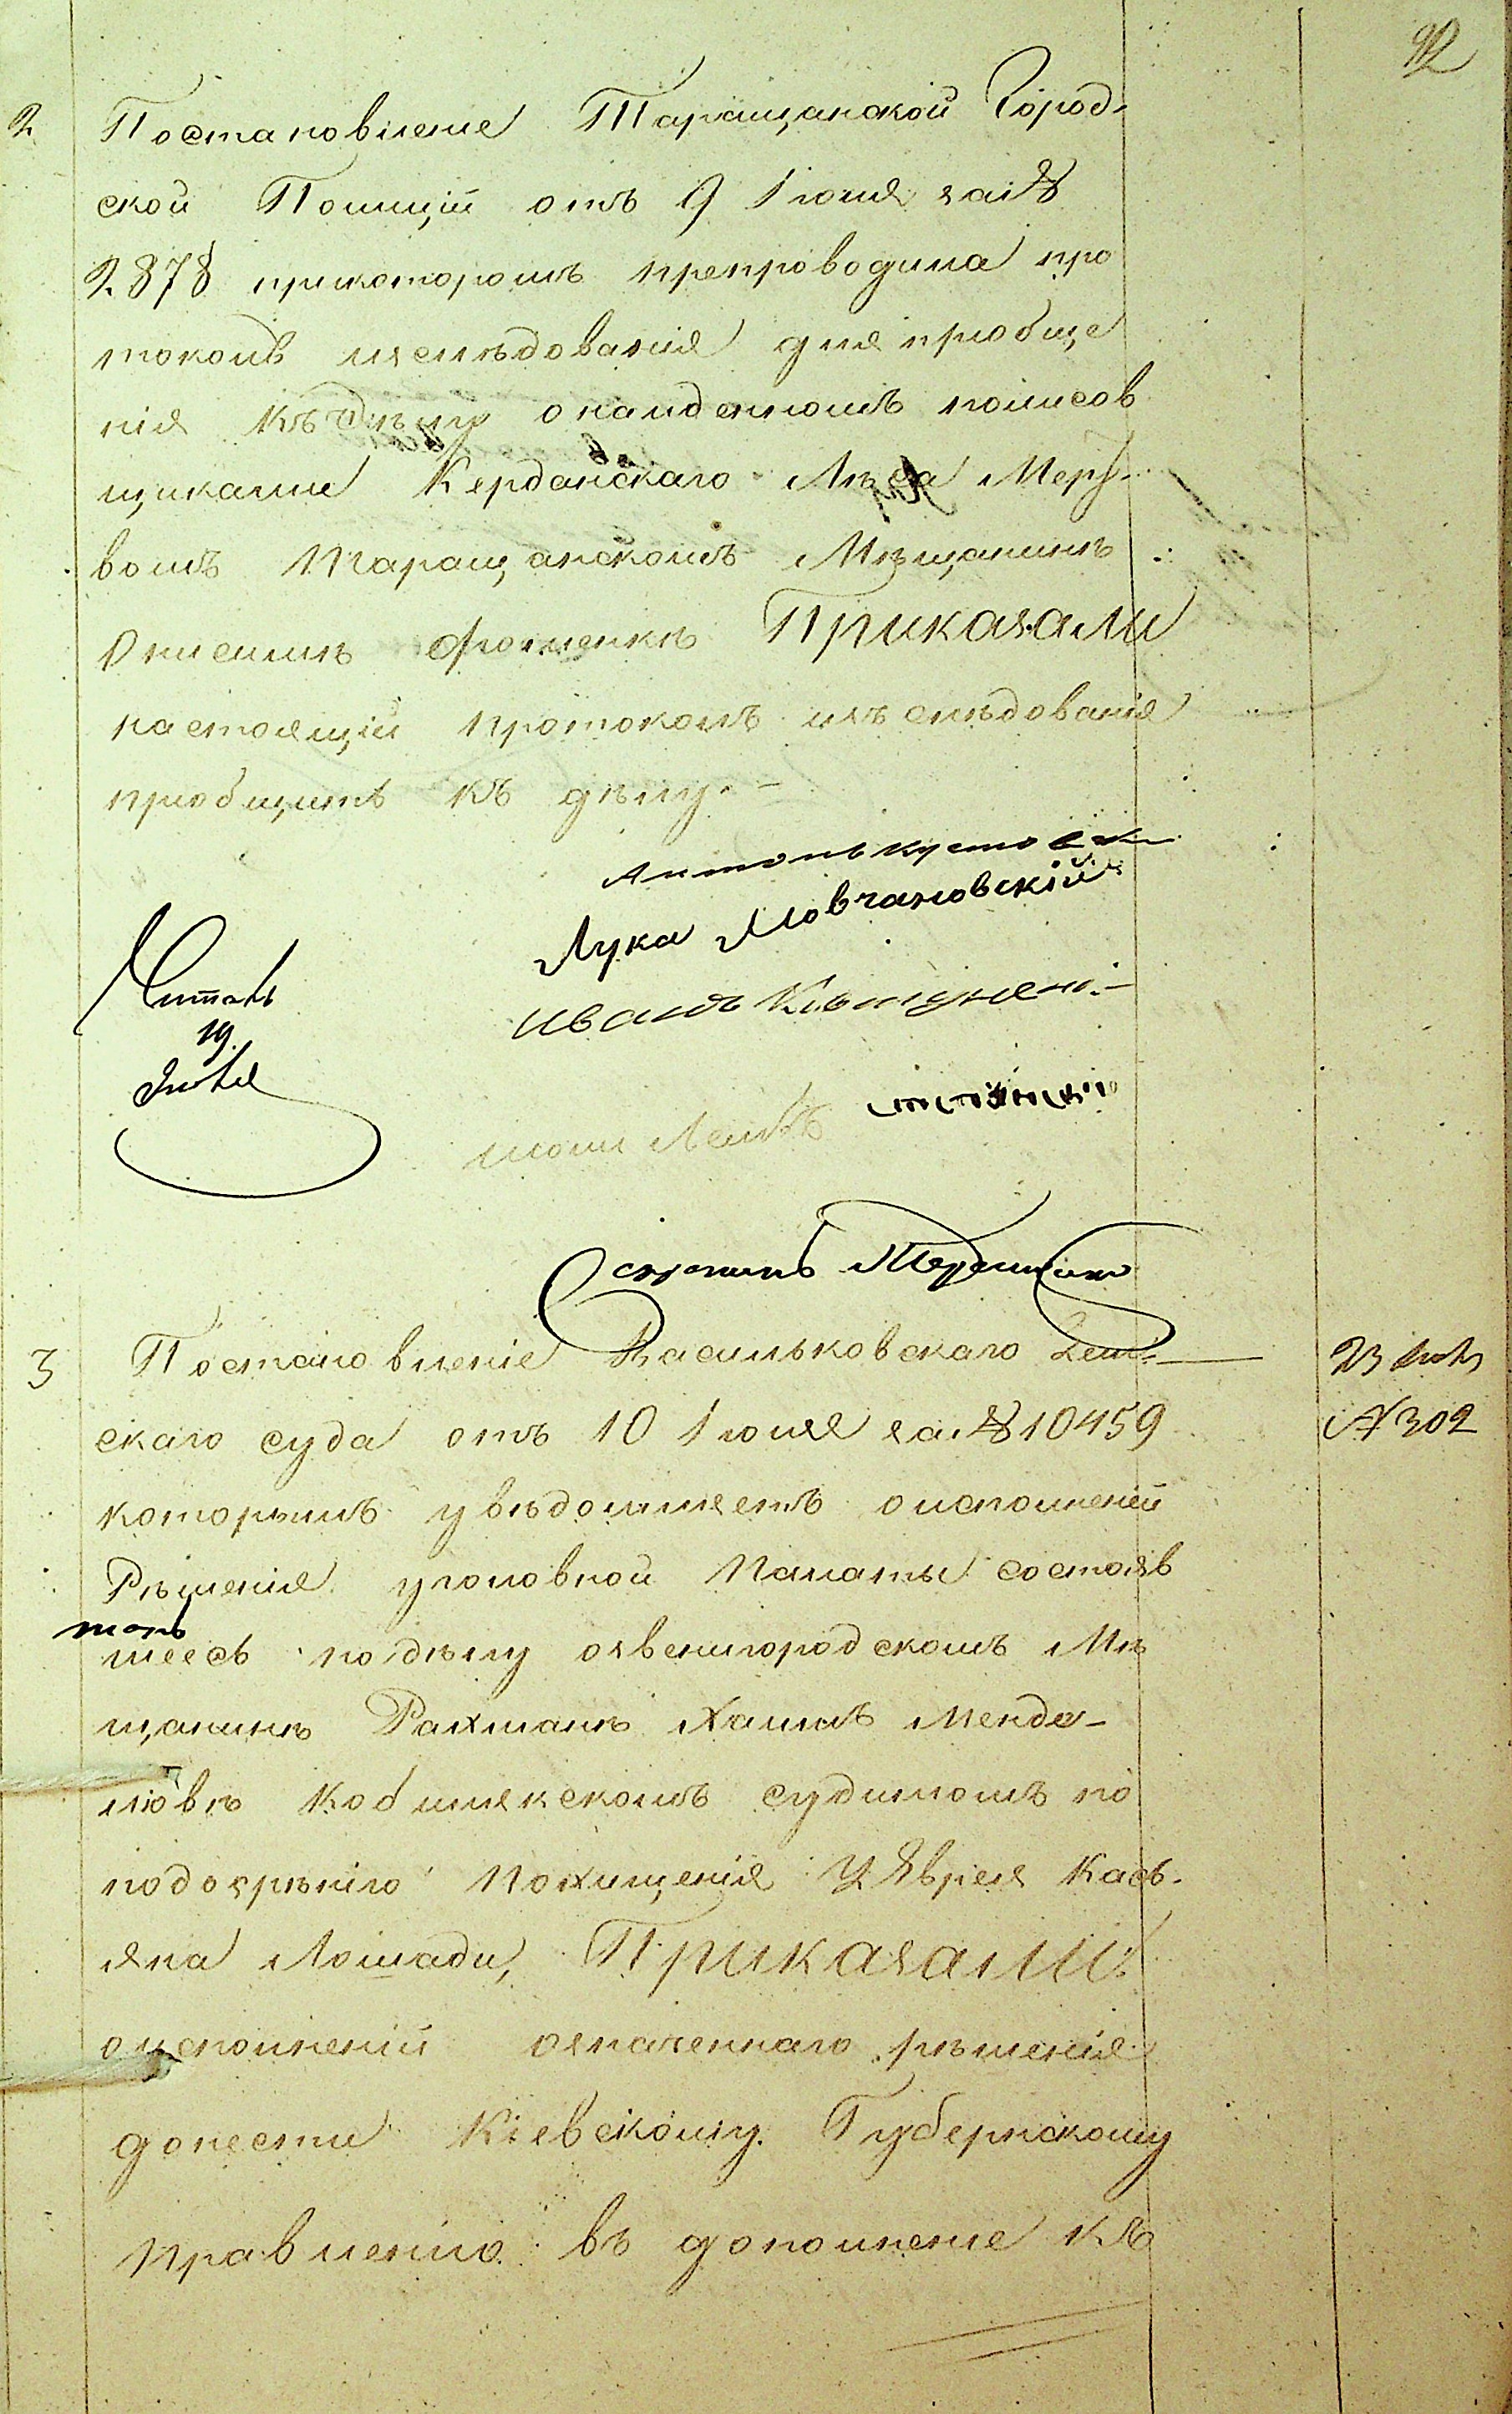 92
2. Постановление Таращанской Город-
ской Полиціи отъ 9 Іюня за №
2878 прикоторомъ препроводила про
токолъ изслѣдованія для приобще
нія къ дѣлу онайденномъ полисов
щиками Керданскаго Лѣса Мерт-
вомъ Таращанскомъ Мѣщанинѣ
Онисимѣ Фоменкѣ Приказали
настоящій протоколъ изъслѣдованія
приобщить къ дѣлу.-
Антонъ
Лука Мовчановскій
Иванъ
Читалъ
19.
Іюля
3 Постановленіе Васильковскаго Зем-
скаго суда отъ 10 Іюля за № 10459
23 Іюля
№ 302
которымъ увѣдомляетъ оисполненіи
Рѣшенія уголовной Палаты состояв
шеесь подѣлу озвенигородскомъ Мѣ
щанинѣ Рахманѣ Хаимѣ Менде-
лювѣ Кобылянскомъ судимомъ по
подозрѣнію Похищенія У Яврея Касъ-
яна Лошади, Приказали:
оисполненіи означеннаго рѣшенія
донести Кіевскому Губернскому
правленію въ дополнение къ